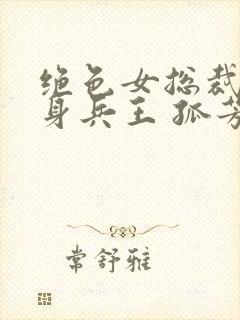 绝色女总裁
身兵王 孤芳
常舒雅